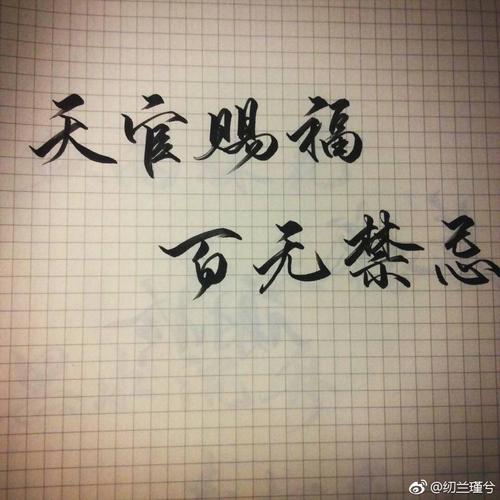 天官赐福
百无禁忌
@纫兰瑾兮